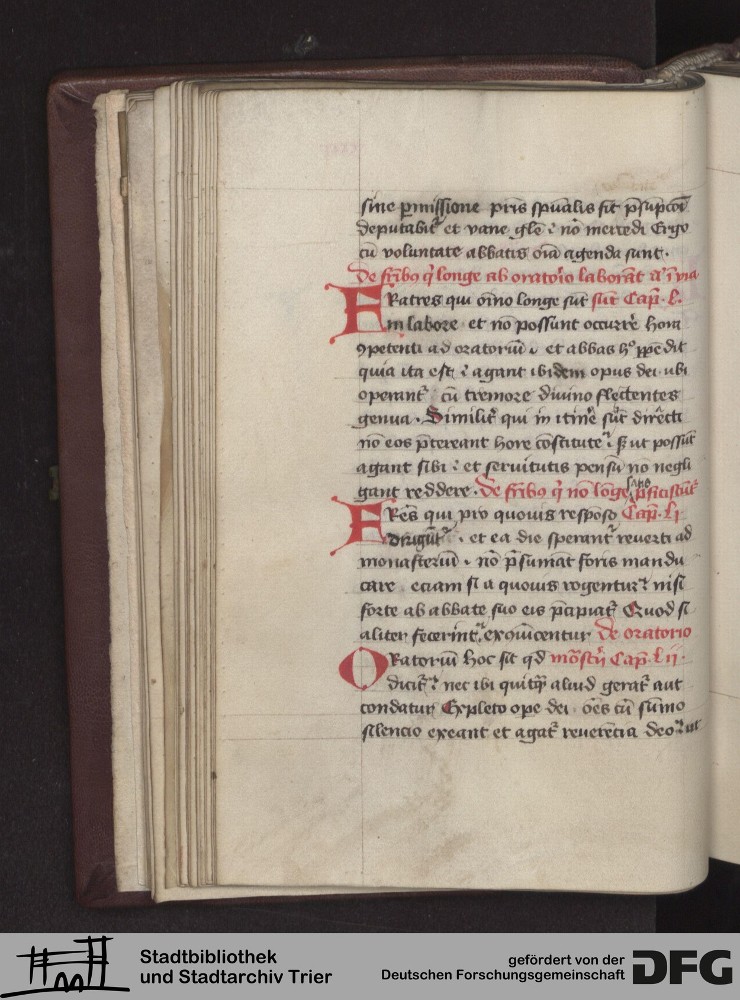 sine ꝑmissione pr̄is spūalis fit p̄sūpcōi
deputabit᷑ et vane glē ⁊ nō mercedi Ergo
cū voluntate abbatis oīa agenda sunt.
de fr̄ibꝯ q̇ longe ab oratoīo laborāt a͛ ī via
FRatres qui oīno longe sūt sūt Cap̄. L.
in labore. et nō possunt occurre͛ hora
ꝯpetenti ad oratoriū. et abbas hᵒ ꝑpēdit
quia ita est ⁊ agant ibidem opus dei. ubi
operant᷑ cū tremore divino flectentes
genua. Similit᷑ qui in itine͛ sūt directi
nō eos p̄tereant hore cōstitute ⁊ sꝫ ut possūt
agant sibi ⁊ et servitutis pensū nō negli
gant reddere. de fr̄ibꝯ q̇ nō lōge satis ꝓficiscūt᷑
FRēs qui pro quovis respōso Cap̄. Li
dirigūt᷑. et ea die sperant᷑ reverti ad
monasteriū. nō p̄sumāt foris mandu
care eciam si a quovis rogentur ⁊ nisi
forte ab abbate suo eis p̄cipiat᷑ Quod si
aliter fecerint, excōīcentur de oratorio
ORatoriū hoc sit qd̄ mōastīi Cap̄. Lii.
dicit᷑ ⁊ nec ibi quitꝗ̄ aliud gerat᷑ aut
condatur Expleto ope dei. oēs cū sūmo
silencio exeant et agat᷑ reverēcia deo ⁊ ut
Stadtbibliothek
und Stadtarchiv Trier
gefördert von der
Deutschen Forschungsgemeinschaft
DFG